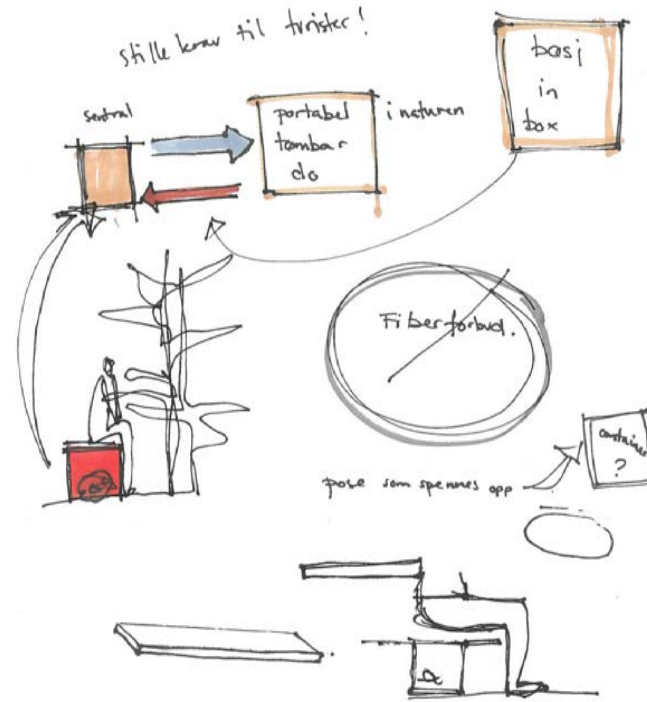 stille krav til turister!
sentral
portabel
tømbar
do
i naturen
basj
in
box
Fiberforbud.
container
?
pose som spennes opp